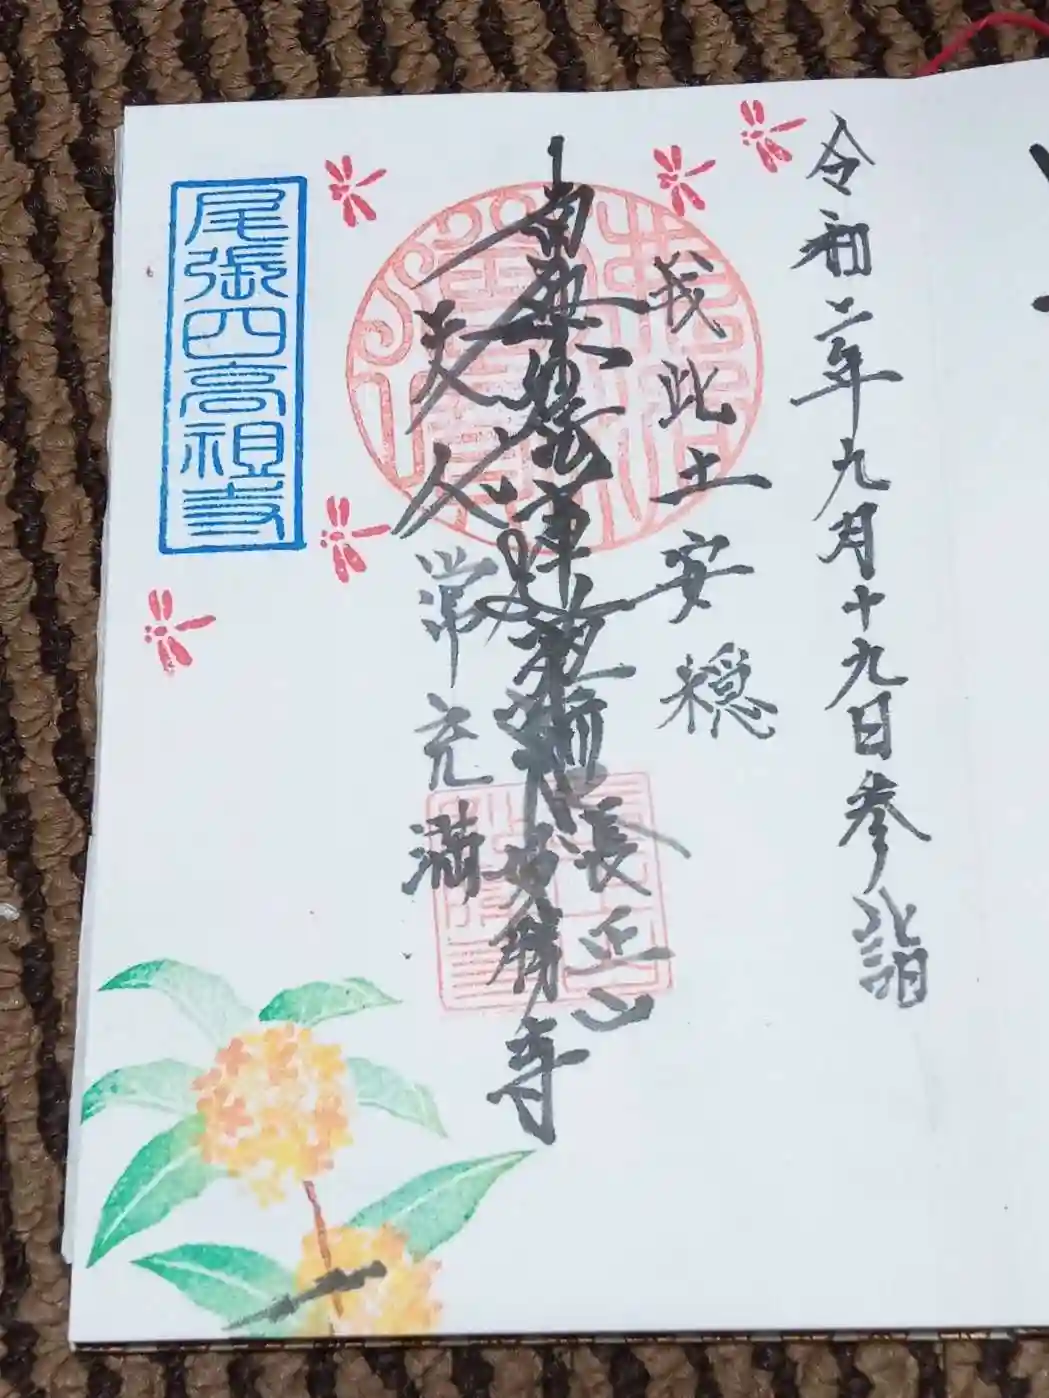 令和二年九月十九日参詣
我此土安穏
南無妙法蓮華経
天人常充満
長正山
妙勝寺
尾張四高祖寺